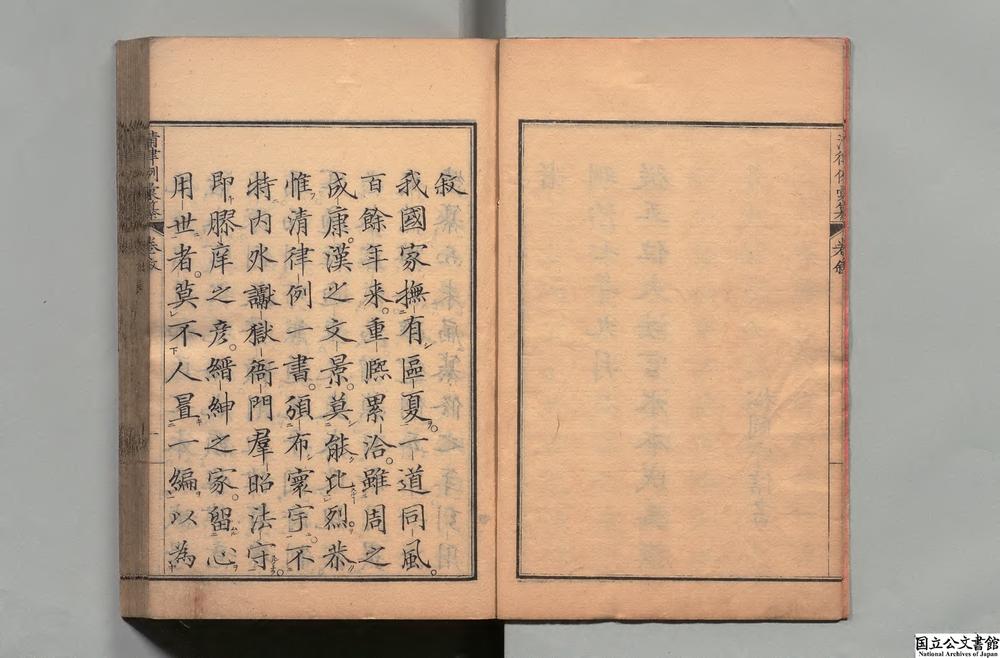 叙
我國家撫有區夏。一道同風。
百餘年來。重熈累洽。雖周之
成康。漢之文景。莫能比烈。恭
惟清律例一書。頒布寰宇。不
特内外讞獄衙門羣昭法守。
即膠庠之彦。縉紳之家。留心
用世者。莫不人置一編。以為
国立公文書館
National Archives of Japan